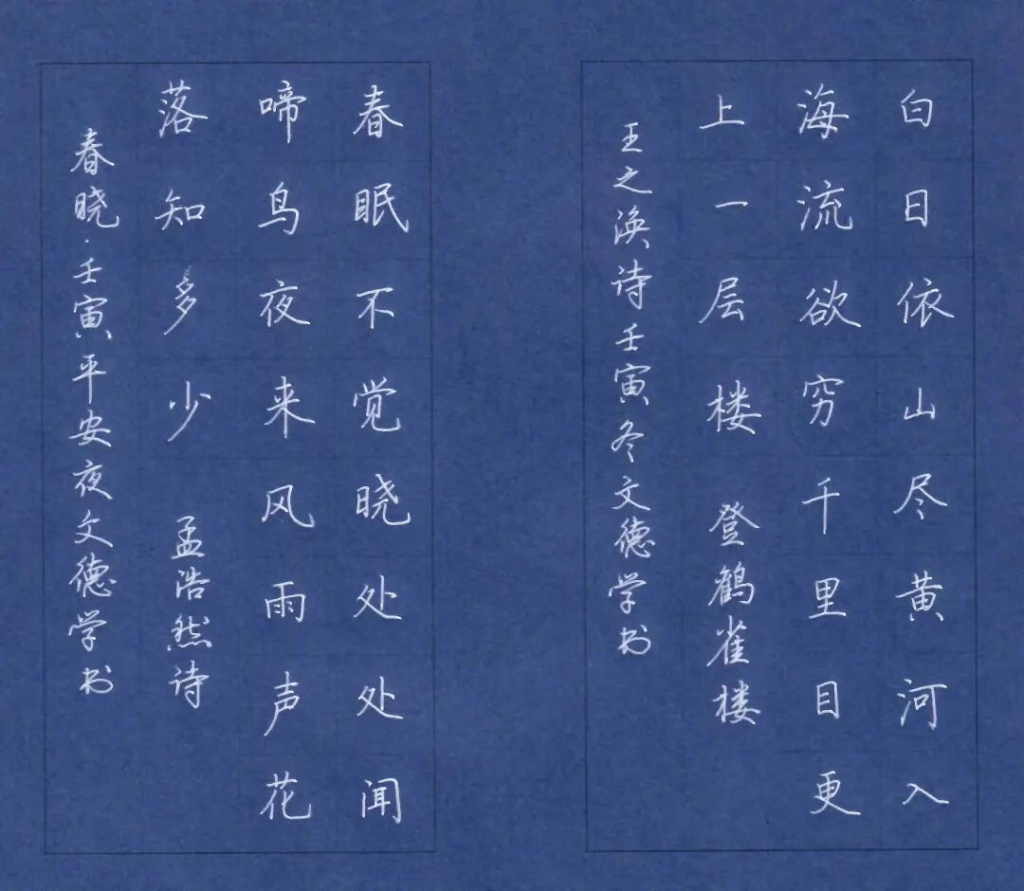 白日依山尽黄河入
海流欲穷千里目更
上一层楼 登鹤雀楼
王之涣诗壬寅冬文德学书
春眠不觉晓处处闻
啼鸟夜来风雨声花
落知多少 孟浩然诗
春晓·壬寅平安夜文德学书